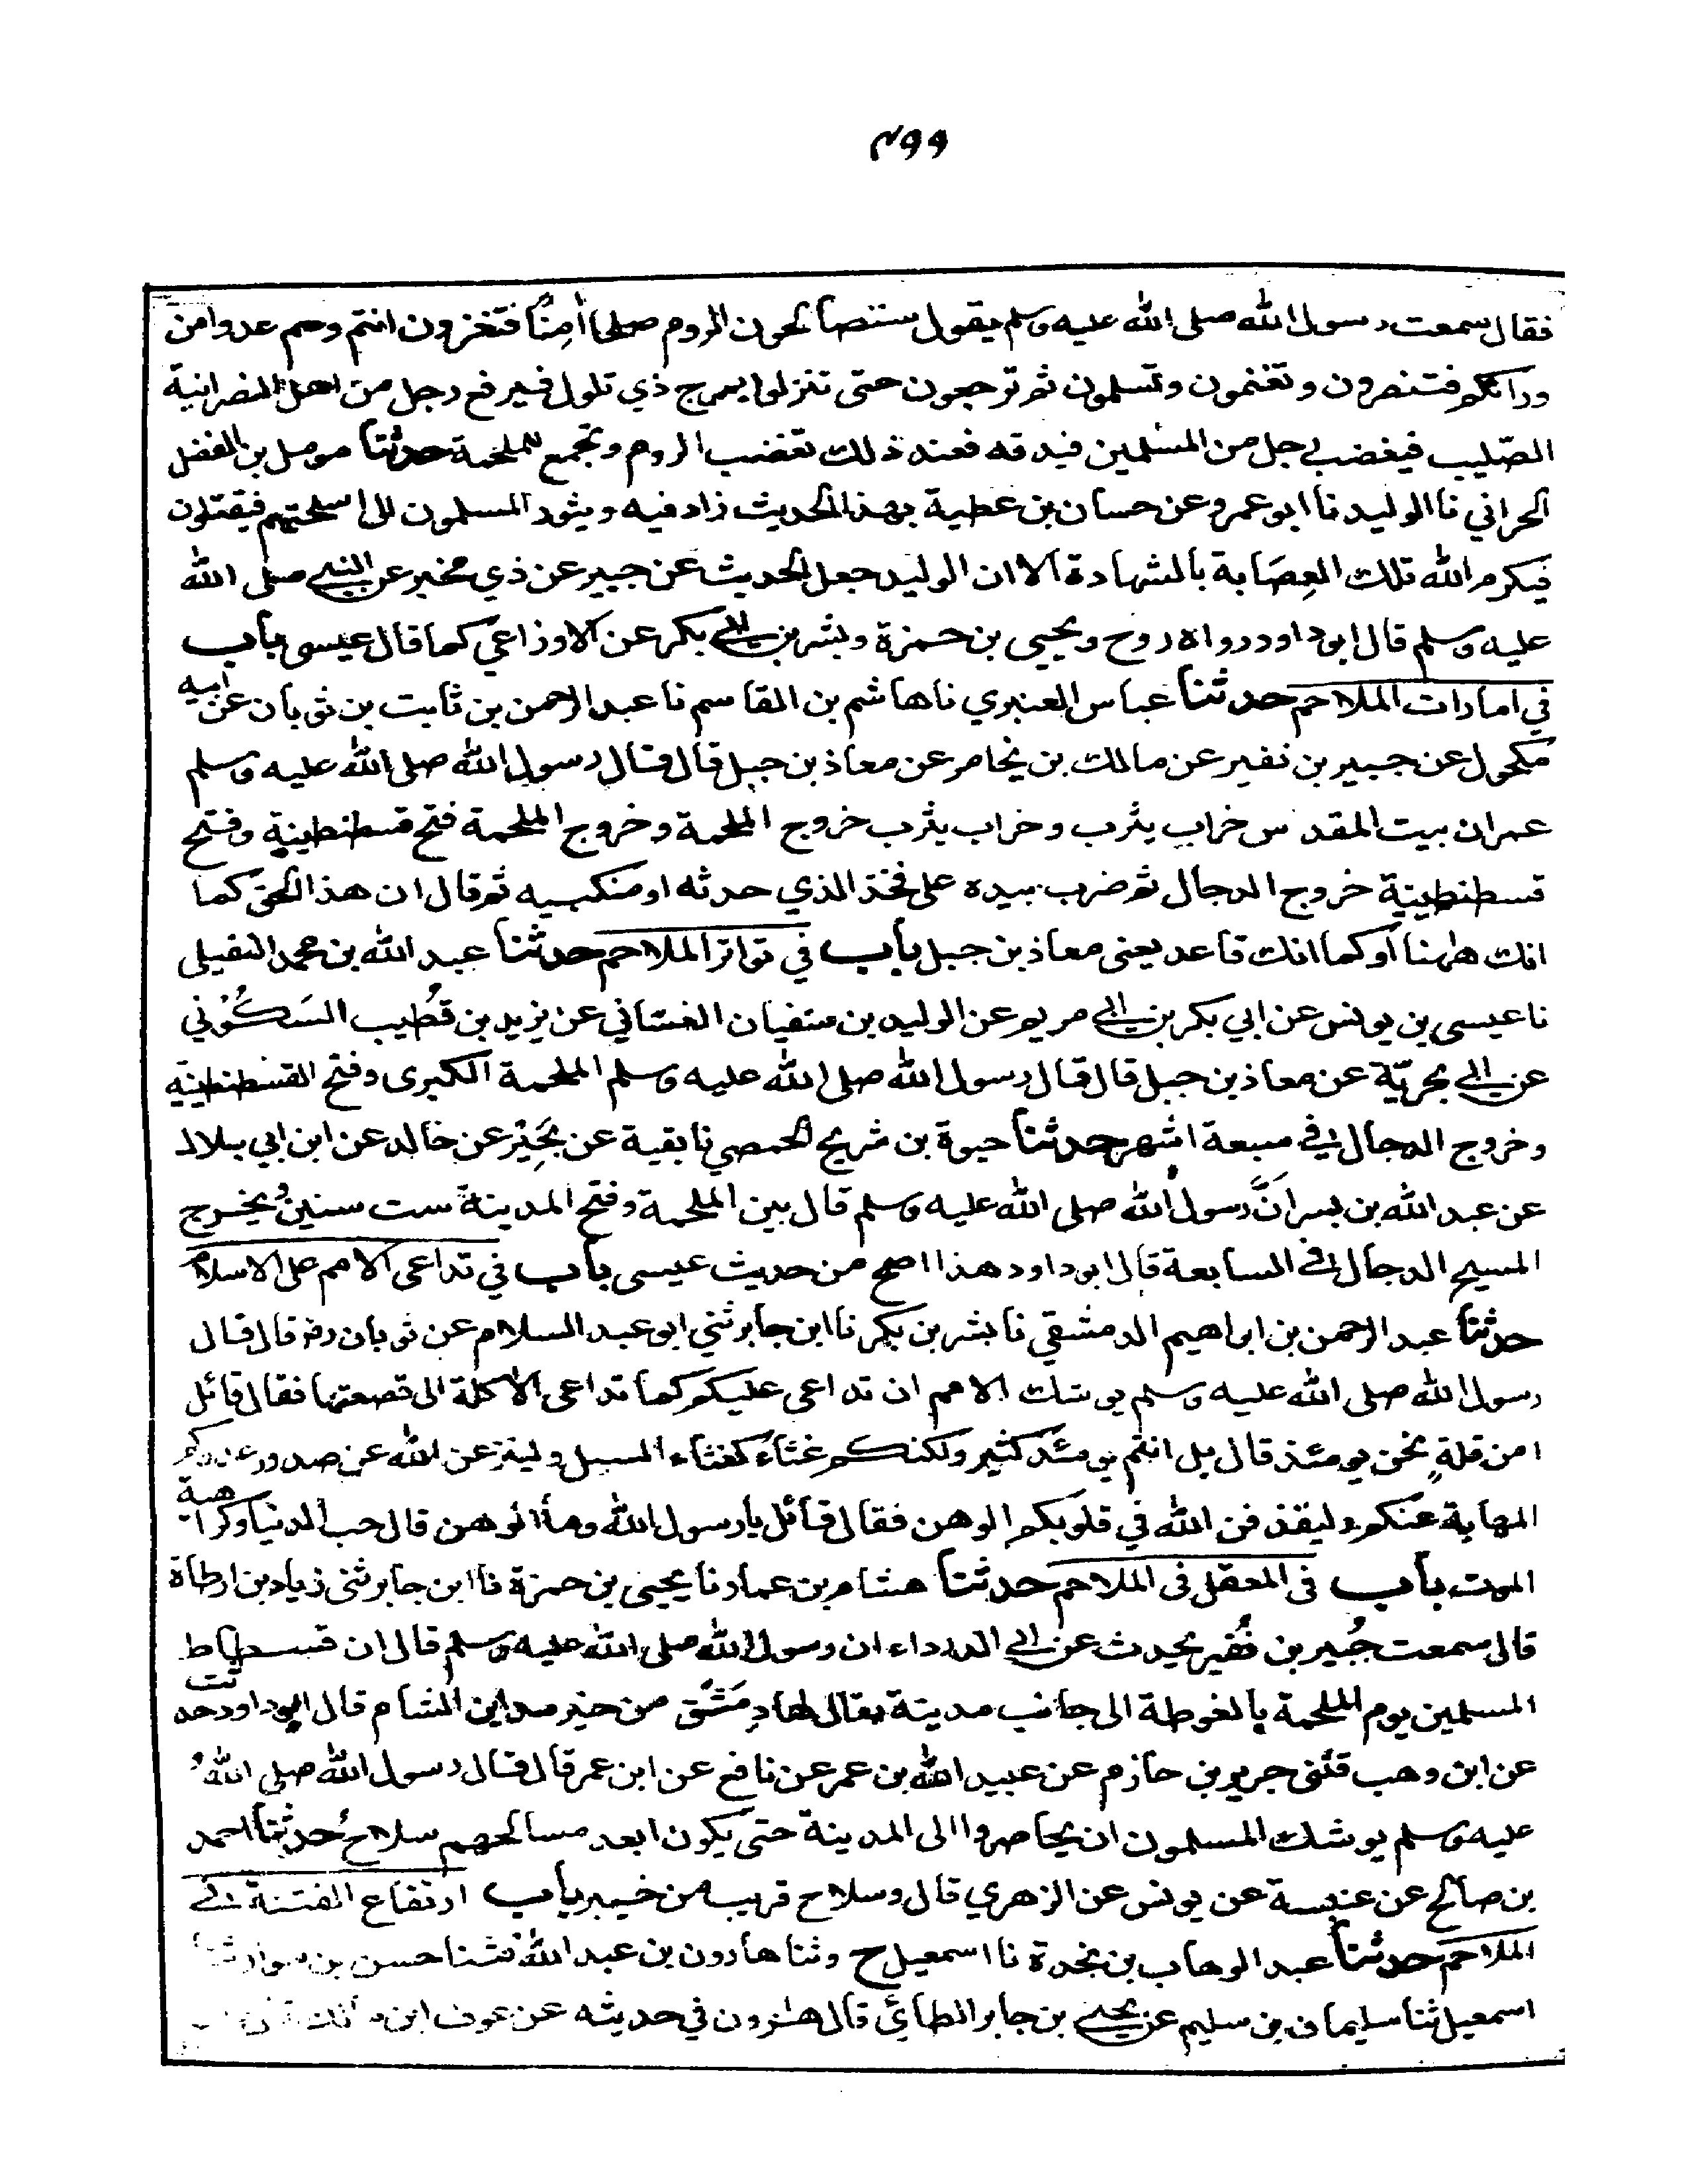 ٤٩٩
فقال سمعت رسول الله صلى الله عليه وسلم يقول ستصالحون الروم صلحا أمِنًا فتغزون انتم وهم عدوا من
ورائكم فتنصرون وتغنمون وتسلمون ثم ترجعون حتى تنزلوا بمرج ذي تلول فيرفع رجل من اهل النصرانية
الصّليب فيغضب رجل من المسلمين فيدقه فعند ذلك تغضب الروم وتجمع للملحمة حدثنا مومل بن الفضل
الحراني نا الوليد نا ابو عمرو عن حسان بن عطية بهذا الحديث زاد فيه ويثور المسلمون الى اسلحتهم فيقتتلون
فيكرم الله تلك العِصَابة بالشهادة الا ان الوليد جعل الحديث عن جبير عن ذي مخبر عن النبي صلى الله
عليه وسلم قال ابو داود رواه روح ويحيى بن حمزة وبشر بن ابي بكر عن الاوزاعي كما قال عيسى باب
في امارات الملاحم حدثنا عباس العنبري نا هاشم بن القاسم نا عبد الرحمن بن ثابت بن ثوبان عن ابيه
مكحول عن جبير بن نفير عن مالك بن يخامر عن معاذ بن جبل قال قال رسول الله صلى الله عليه وسلم
عمران بيت المقدس خراب يثرب وخراب يثرب خروج الملحمة وخروج الملحمة فتح قسطنطينية وفتح
قسطنطينية خروج الدجال ثم ضرب بيده على فخذ الذي حدثه او منكبيه ثم قال ان هذا الحق كما
انك ههنا أو كما انك قاعد يعني معاذ بن جبل باب في تواتر الملاحم حدثنا عبد الله بن محمد النفيلي
نا عيسى بن يونس عن ابي بكر بن ابي مريم عن الوليد بن سفيان الغسّاني عن يزيد بن قُطيب السَكُوْني
عن ابي بحريّة عن معاذ بن جبل قال قال رسول الله صلى الله عليه وسلم الملحمة الكبرى وفتح القسطنطينيه
وخروج الدجال في سبعة اشهر حدثنا حيوة بن شريح الحمصي نا بقية عن بَحِيْر عن خالد عن ابن ابي بلال
عن عبد الله بن بسر انَّ رسول الله صلى الله عليه وسلم قال بين الملحمة وفتح المدينة ست سنين ويخرج
المسيح الدجال في السابعة قال ابو داود هذا اصح من حديث عيسى باب في تداعى الامم على الاسلام
حدثنا عبد الرحمن بن ابراهيم الدمشقي نا بشر بن بكر نا ابن جابر ثني ابو عبد السلام عن ثوبان رض قال قال
رسول الله صلى الله عليه وسلم يوشك الامم ان تداعى عليكم كما تداعى الاكلة الى قصعتها فقال قائل
امن قلةٍ نحن يومئذ قال بل انتم يومئذ كثير ولكنكم غثاء كغثاء السيل ولينزعن الله عن صدور عدوكم
المهابة عنكم وليقذفن الله في قلوبكم الوهن فقال قائل يا رسول الله وما الوهن قال حب الدنيا وكراهية
الموت باب في المعقل في الملاحم حدثنا هشام بن عمار نا يحيى بن حمزة نا ابن جابر ثني زياد بن ارطاة
قال سمعت جُبير بن نُفير يحدث عن ابي الدرداء ان رسول الله صلى الله عليه وسلم قال ان فسطاط
المسلمين يوم الملحمة بالغوطة الى جانب مدينة يقال لها دِمَشْق من خير مداين الشام قال ابو داود حدثت
عن ابن وهب قثنى جرير بن حازم عن عبيد الله بن عمر عن نافع عن ابن عمر قال قال رسول الله صلى اللهُ
عليه وسلم يوشك المسلمون ان يحاصروا الى المدينة حتى يكون ابعد مسالحهم سلاحُ حدثنا احمد
بن صالح عن عنبسة عن يونس عن الزهري قال وسلاح قريب من خيبر باب ارتفاع الفتنة في
الملاحم حدثنا عبد الوهاب بن نجدة نا اسمعيل ح وثنا هارون بن عبد الله فثنا حسن بن سوار ثنا
اسمعيل ثنا سليمان بن سليم عن يحيى بن جابر الطائي قال هرون في حديثه عن عوف ابن مالك